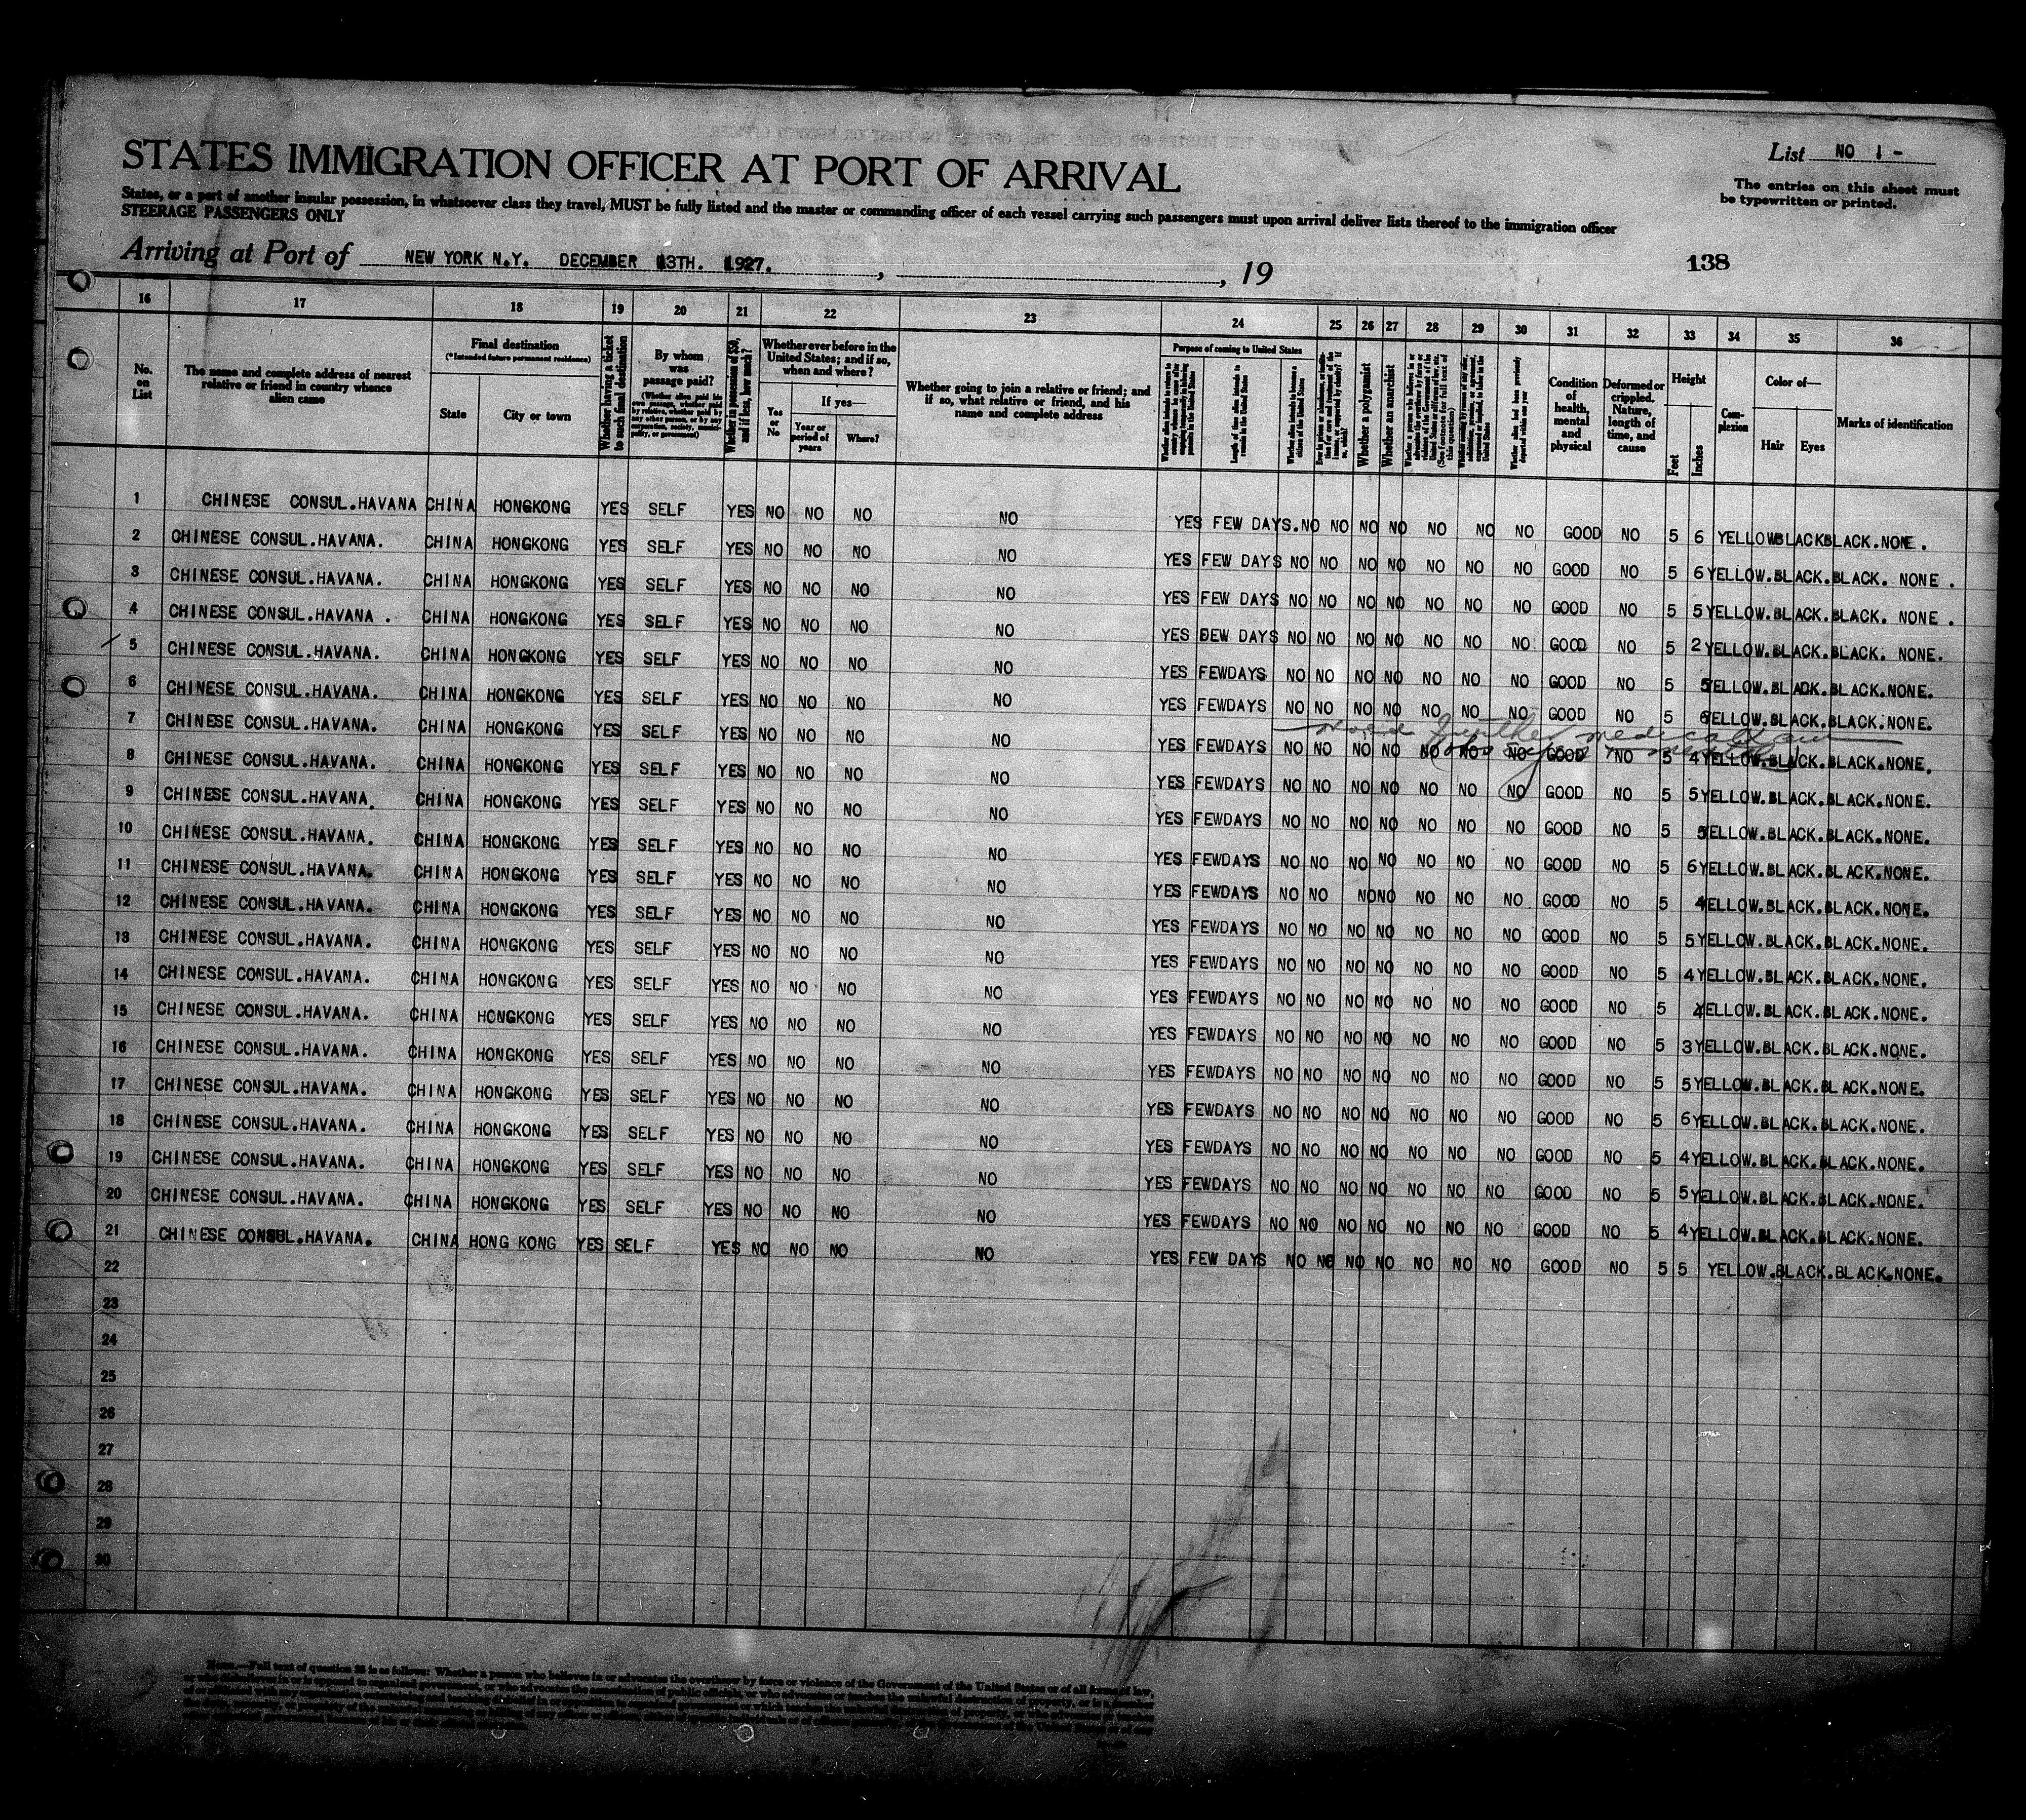 STATES IMMIGRATION OFFICER AT PORT OF ARRIVAL
List NO 1 -
The entries on this sheet must
be typewritten or printed.
States, or a part of another insular possession, in whatsoever class they travel, MUST be fully listed and the master or commanding officer of each vessel carrying such passengers must upon arrival deliver lists thereof to the immigration officer
STEERAGE PASSENGERS ONLY
Arriving at Port of NEW YORK N.Y. DECEMBER 13TH. 1927. , , 19
138
16 17 18 19 20 21 22 23 24 25 26 27 28 29 30 31 32 33 34 35 36
No. on List
The name and complete address of nearest relative or friend in country whence alien came
Final destination
(*Intended future permanent residence)
State
City or town
Whether having a ticket to such final destination
By whom was passage paid?
(Whether alien paid his own passage, whether paid by relative, whether paid by any other person, or by any corporation, society, municipality, or government)
Whether in possession of $50, and if less, how much?
Whether ever before in the United States; and if so, when and where?
Yes or No
If yes—
Year or period of years
Where?
Whether going to join a relative or friend; and if so, what relative or friend, and his name and complete address
Purpose of coming to United States
Length of time alien intends to remain in the United States
Whether alien intends to become a citizen of the United States
Whether a polygamist
Whether an anarchist
Condition of health, mental and physical
Deformed or crippled. Nature, length of time, and cause
Height
Feet
Inches
Complexion
Color of—
Hair
Eyes
Marks of identification
1 CHINESE CONSUL.HAVANA CHINA HONGKONG YES SELF YES NO NO NO NO YES FEW DAYS.NO NO NO NO NO NO NO GOOD NO 5 6 YELLOWBLACKBLACK.NONE.
2 CHINESE CONSUL.HAVANA. CHINA HONGKONG YES SELF YES NO NO NO NO YES FEW DAYS NO NO NO NO NO NO NO GOOD NO 5 6 YELLOW.BLACK.BLACK. NONE .
3 CHINESE CONSUL.HAVANA. CHINA HONGKONG YES SELF YES NO NO NO NO YES FEW DAYS NO NO NO NO NO NO NO GOOD NO 5 5 YELLOW.BLACK.BLACK. NONE .
4 CHINESE CONSUL.HAVANA . CHINA HONGKONG YES SELF YES NO NO NO NO YES DEW DAYS NO NO NO NO NO NO NO GOOD NO 5 2 YELLOW.BLACK.BLACK. NONE.
5 CHINESE CONSUL.HAVANA. CHINA HONGKONG YES SELF YES NO NO NO NO YES FEWDAYS NO NO NO NO NO NO NO GOOD NO 5 5YELLOW.BLACK.BLACK.NONE.
6 CHINESE CONSUL.HAVANA. CHINA HONGKONG YES SELF YES NO NO NO NO YES FEWDAYS NO NO NO NO NO NO NO GOOD NO 5 6YELLOW.BLACK.BLACK.NONE.
further medical
7 CHINESE CONSUL.HAVANA. CHINA HONGKONG YES SELF YES NO NO NO NO YES FEWDAYS NO NO NO NO NO NO NO GOOD NO 5 4YELLOW.BLACK.BLACK.NONE.
8 CHINESE CONSUL.HAVANA. CHINA HONGKONG YES SELF YES NO NO NO NO YES FEWDAYS NO NO NO NO NO NO NO GOOD NO 5 5YELLOW.BLACK.BLACK.NONE.
9 CHINESE CONSUL.HAVANA. CHINA HONGKONG YES SELF YES NO NO NO NO YES FEWDAYS NO NO NO NO NO NO NO GOOD NO 5 5ELLOW.BLACK.BLACK.NONE.
10 CHINESE CONSUL.HAVANA. CHINA HONGKONG YES SELF YES NO NO NO NO YES FEWDAYS NO NO NO NO NO NO NO GOOD NO 5 6YELLOW.BLACK.BLACK.NONE.
11 CHINESE CONSUL.HAVANA. CHINA HONGKONG YES SELF YES NO NO NO NO YES FEWDAYS NO NO NONO NO NO NO GOOD NO 5 4ELLOW.BLACK.BLACK.NONE.
12 CHINESE CONSUL.HAVANA. CHINA HONGKONG YES SELF YES NO NO NO NO YES FEWDAYS NO NO NO NO NO NO NO GOOD NO 5 5YELLOW.BLACK.BLACK.NONE.
13 CHINESE CONSUL.HAVANA. CHINA HONGKONG YES SELF YES NO NO NO NO YES FEWDAYS NO NO NO NO NO NO NO GOOD NO 5 4YELLOW.BLACK.BLACK.NONE.
14 CHINESE CONSUL.HAVANA. CHINA HONGKONG YES SELF YES NO NO NO NO YES FEWDAYS NO NO NO NO NO NO NO GOOD NO 5 4ELLOW.BLACK.BLACK.NONE.
15 CHINESE CONSUL.HAVANA. CHINA HONGKONG YES SELF YES NO NO NO NO YES FEWDAYS NO NO NO NO NO NO NO GOOD NO 5 3YELLOW.BLACK.BLACK.NONE.
16 CHINESE CONSUL.HAVANA. CHINA HONGKONG YES SELF YES NO NO NO NO YES FEWDAYS NO NO NO NO NO NO NO GOOD NO 5 5YELLOW.BLACK.BLACK.NONE.
17 CHINESE CONSUL.HAVANA. CHINA HONGKONG YES SELF YES NO NO NO NO YES FEWDAYS NO NO NO NO NO NO NO GOOD NO 5 6YELLOW.BLACK.BLACK.NONE.
18 CHINESE CONSUL.HAVANA. CHINA HONGKONG YES SELF YES NO NO NO NO YES FEWDAYS NO NO NO NO NO NO NO GOOD NO 5 4YELLOW.BLACK.BLACK.NONE.
19 CHINESE CONSUL.HAVANA. CHINA HONGKONG YES SELF YES NO NO NO NO YES FEWDAYS NO NO NO NO NO NO NO GOOD NO 5 5YELLOW.BLACK.BLACK.NONE.
20 CHINESE CONSUL.HAVANA. CHINA HONGKONG YES SELF YES NO NO NO NO YES FEWDAYS NO NO NO NO NO NO NO GOOD NO 5 4YELLOW.BLACK.BLACK.NONE.
21 CHINESE CONSUL.HAVANA. CHINA HONG KONG YES SELF YES NO NO NO NO YES FEW DAYS NO NO NO NO NO NO NO GOOD NO 5 5 YELLOW.BLACK.BLACK.NONE.
22
23
24
25
26
27
28
29
30
Note.—Full text of question 28 is as follows: Whether a person who believes in or advocates the overthrow by force or violence of the Government of the United States or of all forms of law,